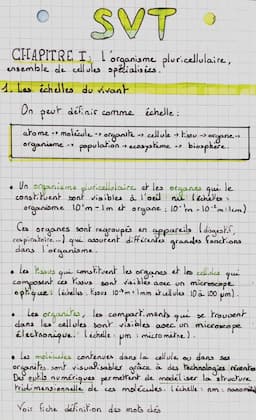 SVT
CHAPITRE I: L'organisme pluricellulaire,
ensemble de cellules spécialisées.
1. Les échelles du vivant
On peut définir comme échelle :
atome → molécule → organite → cellule → tissu → organe →
organisme → population → écosystème → biosphère.
• Un organisme pluricellulaire et les organes qui le
constituent sont visibles à l'œil nu (échelles :
organisme 10⁰m = 1m et organe : 10⁻¹m - 10⁻²m = 1cm)
Ces organes sont regroupés en appareils (digestif,
respiratoire...) qui assurent différentes grandes fonctions
dans l'organisme.
• Les tissus qui constituent les organes et les cellules qui
composent ces tissus sont visibles avec un microscope
optique : (échelles : tissus 10⁻³m = 1mm et cellules 10 à 100 µm)
• Les organites, les compartiments qui se trouvent
dans les cellules sont visibles avec un microscope
électronique. (échelle : µm : micromètre).
• Les molécules contenues dans la cellule ou dans ses
organites sont visualisables grâce à des technologies récentes
Des outils numériques permettent de modéliser la structure
tridimensionnelle de ces molécules. (échelle : nm : nanomètre
Voir fiche définition des mots clés